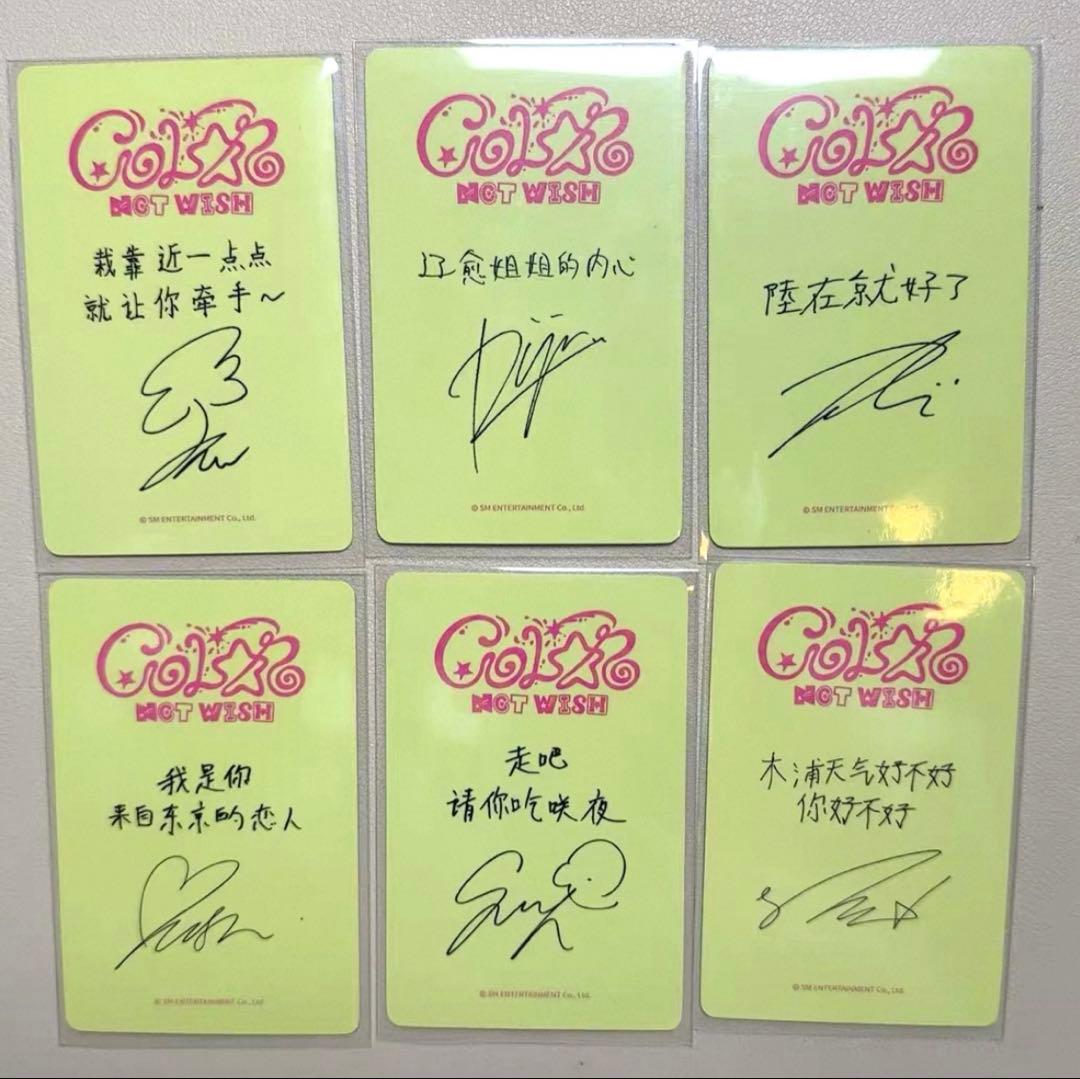 COLOR
NCT WISH
栽靠近一点点
就让你牵手~
© SM ENTERTAINMENT Co., Ltd.
COLOR
NCT WISH
辽愈姐姐的内心
© SM ENTERTAINMENT Co., Ltd.
COLOR
NCT WISH
陸在就好了
© SM ENTERTAINMENT Co., Ltd.
COLOR
NCT WISH
我是你
来自东京的恋人
© SM ENTERTAINMENT Co., Ltd.
COLOR
NCT WISH
走吧
请你吃咲夜
© SM ENTERTAINMENT Co., Ltd.
COLOR
NCT WISH
木浦天气好不好
你好不好
© SM ENTERTAINMENT Co., Ltd.